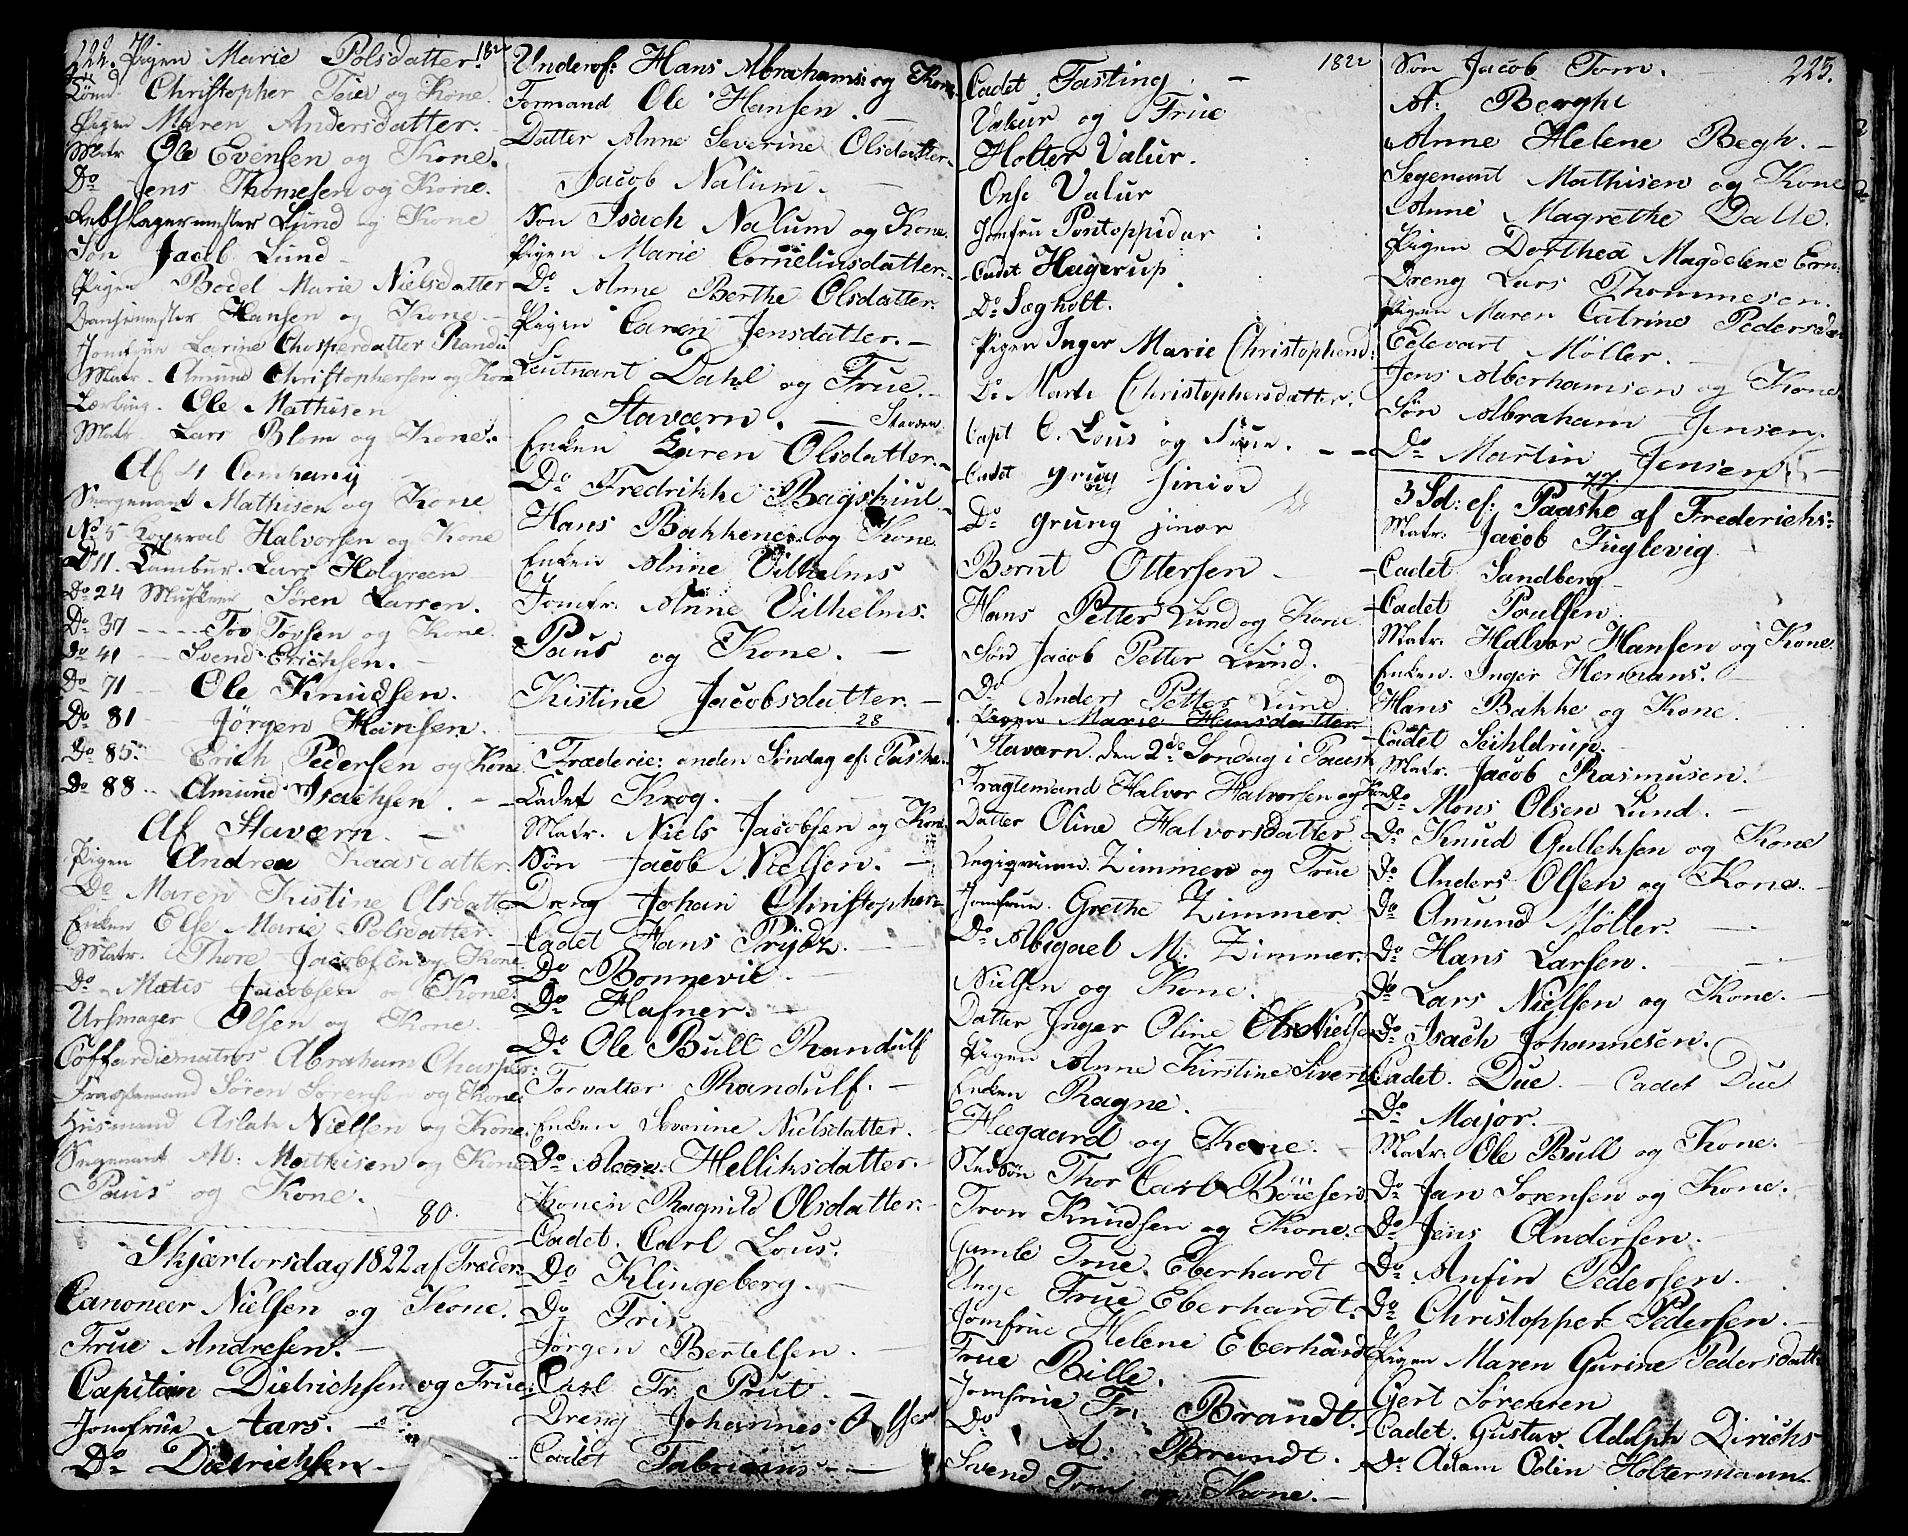 222. Pigen Marie Polsdatter. 182
Christopher Teie og Kone
Pigen Maren Andersdatter.
Matr. Ole Evensen og Kone.
Do Jens Thomesen og Kone.
Rebslagermester Lund og Kone
Søn Jacob Lund
Pigen Bodel Marie Nielsdatter
Hansen og Kone.
Jomfrue Larine Chasperdatter
Matr. Amund Christophersen og Kone
Lærling. Ole Mathisen
Matr. Lars Blom og Kone.
Af 4 Companij
Mathisen og Kone
No 5 Coperal Halvorsen og Kone
Do 11. Tambur. Lars Holgreen
Do 24 Musketeer Søren Larsen.
Do 37 - - - Tov Tovsen og Kone.
Do 41 - Svend Erichsen.
Do 71 - Ole Knudsen.
Do 81 - Jørgen Hansen.
Do 85. Erich Pedersen og Kone
Do 88 - Amund Isachsen.
Af Staværn.
Pigen Andrea Haasdatter.
Do Maren Kistine Olsdatt
Enken Else Marie Polsdatter.
Matr. Thore Jacobsen og Kone
Do Matis Jacobsen og Kone.
Urmager Olsen og Kone.
Coffardiematros Abraham Chasper:
Fragtemand Søren Sørensen og Kone.
Husmand Aslak Nielsen og Kone.
M: Mathisen og Kone
Paus og Kone.
80.
Skjærtorsdag 1822 af Freder:
Canoneer Nielsen og Kone.
Frue Andresen.
Capitain Dietrichsen og Frue.
Jomfrue Aars.
Do Dietrichsen
Underof: Hans Abrahams: og Kone
Formand Ole Hansen.
Datter Anne Severine Olsdatter.
Jacob Nalum.
Søn Isach Nalum og Kone.
Pigen Marie Cornelinsdatter.
Do Anne Berthe Olsdatter.
Pigen Caren Jensdatter.
Leutnant Dahl og Frue.
Staværn. Staværn
Enken Karen Olsdatter.
Do Fredrikke Bagskiul
Hans Bakkene og Kone.
Enken Anne Vilhelms
Jomfr. Anne Vilhelms.
Paus og Kone.
Kistine Jacobsdatter.
28
Fræderic: anden Søndag ef: Paaske.
Cadet Krog.
Matr. Niels Jacobsen og Kone
Søn Jacob Nielsen.
Dreng Johan Christopher
Cadet Hans Prydz.
Do Bonnevie
Do Hafner.
Do Ole Bull Randulf
Forvalter Randulf.
Enken Severine Nielsdatter.
Do Helliksdatter.
Konen Ragnild Olsdatter.
Cadet. Carl Lous.
Do Klingeberg.
Do Fris.
Jørgen Bertelsen.
Carl Fr. Prut.
Dreng Johannes Olsen
Cadet Fabricius
Cadet Fasting. 1822
Valeur og Frue
Holter Valur.
Onse Valur
Jomfru Pontoppidar
Cadet Hagerup.
Do Sægholt.
Pigen Inger Marie Christophersd:
Do Marte Christophersdatter.
Capt C. Lous og Frue.
Cadet Grung sinior
Do Grung jinor
Bernt Ottersen
Hans Petter Lund og Kone
Søn Jacob Petter Lund.
Do Anders Petter Lund
Pigen Marie Hansdatter.
Staværn. den 2de Søndag i Paask
Fragtemand Halvor Halvorsen og Kone
Datter Oline Halvorsdatter
Zimmer og Frue
Jomfrue. Grethe Zimmer
Do Abigael M. Zimmer.
Nielsen og Kone.
Datter Inger Oline Nielsen
Pigen Anne Kirstine Siverts
Enken Ragne.
Heegaard og Kone.
Stedsøn Thor Carl Bøiesen
Tron Knudsen og Kone.
Gamle Frue Eberhardt
Unge Frue Eberhardt.
Jomfrue Helene Eberhardt
Frue Bille.
Jomfrue Fr. Brandt.
Do A: Brandt.
Svend Tom og Kone.
Søn Jacob Tom. 223.
M: Berghe
Anne Helene Begh.
Segenant Mathisen og Kone
Anne Magrethe Dalle.
Pigen Dorthea Magdelene Ern:
Dreng Lars Thommesen.
Pigen Maren Catrine Pedersda
Edevart Møller.
Jens Aberhamsen og Kone
Søn Abraham Jensen.
Do Martin Jensen
3 Sd: ef: Paaske af Frederichs:
Matr. Jacob Fuglevig
Cadet Sandberg
Cadet Poulsen
Matr. Halvor Hansen og Kone
Enken. Inger Hermans.
Hans Bakke og Kone.
Cadet Seihldrup.
Matr. Jacob Rasmusen.
Do Mons Olsen Lund.
Do Knud Gulleksen og Kone
Do Anders Olsen og Kone.
Do Amund Møller.
Do Hans Larsen.
Do Lars Nielsen og Kone.
Do Isach Johannesen.
Cadet. Due. Cadet Due
Do Major.
Matr. Ole Bull og Kone.
Do Jan Sørensen og Kone.
Do Jens Andersen.
Do Anfin Pedersen.
Do Christopher Pedersen.
Pigen Maren Gurine Pedersdatt
Gert Sørensen
Cadet. Gustav Adolph Dirichs
Do Adam Odin Holtermann